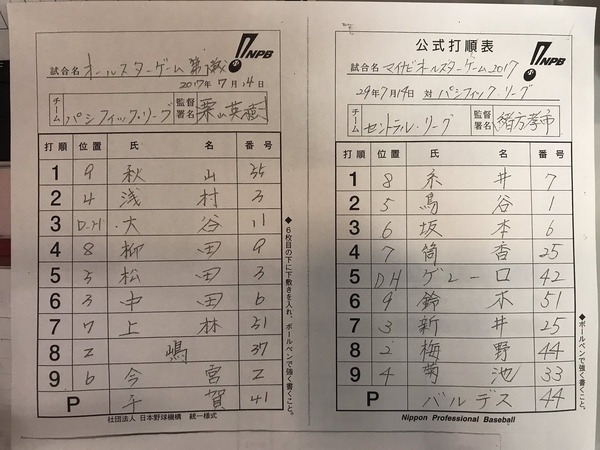 NPB
試合名 オールスターゲーム 第1戦
2017年 7月 14日
チーム パシフィック・リーグ 監督署名 栗山英樹
打順 位置 氏 名 番号
1 9 秋 山 55
2 4 浅 村 3
3 D.H 大 谷 11
4 8 柳 田 9
5 5 松 田 3
6 3 中 田 6
7 7 上 林 51
8 2 嶋 37
9 6 今 宮 2
P 千 賀 41
社団法人 日本野球機構 統一様式
◆6枚目の下に下敷きを入れ、ボールペンで強く書くこと。
公式打順表
NPB
試合名 マイナビオールスターゲーム2017
29年7月14日 対 パシフィックリーグ
チーム セントラル・リーグ 監督署名 緒方孝市
打順 位置 氏 名 番号
1 8 糸 井 7
2 5 鳥 谷 1
3 6 坂 本 6
4 7 筒 香 25
5 DH ゲレーロ 42
6 9 鈴 木 51
7 3 新 井 25
8 2 梅 野 44
9 4 菊 池 33
P バルデス 44
Nippon Professional Baseball
◆ボールペンで強く書くこと。